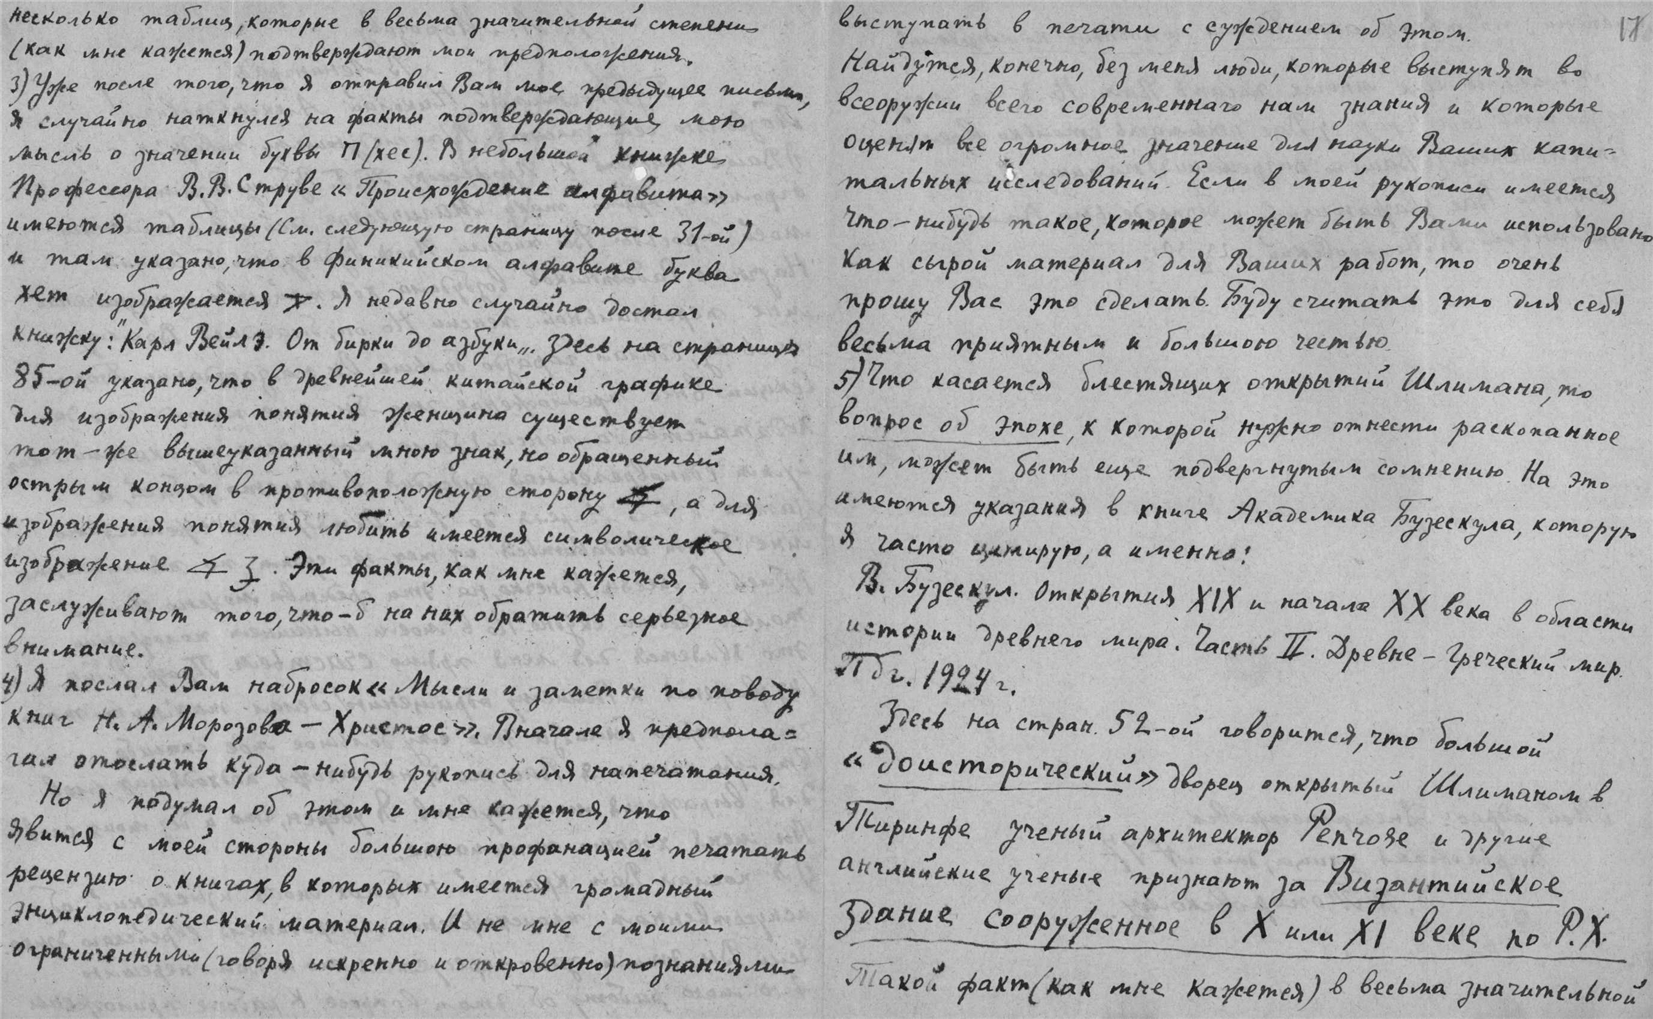 несколько таблиц, которые в весьма значительной степени
(как мне кажется) подтверждают мои предположения.
3) Уже после того, что я отправил Вам мое предыдущее письмо,
я случайно наткнулся на факты подтверждающие мою
мысль о значении буквы П (хес). В небольшой книжке
Профессора В. В. Струве «Происхождение алфавита»
имеются таблицы (См. следующую страницу после 31-ой)
и там указано, что в финикийском алфавите буква
хет изображается . Я недавно случайно достал
книжку: "Карл Вейлэ. От бирки до азбуки„. Здесь на странице
85-ой указано, что в древнейшей китайской графике
для изображения понятия женщина существует
тот-же вышеуказанный мною знак, но обращенный
острым концом в противоположную сторону , а для
изображения понятия любить имеется символическое
изображение . Эти факты, как мне кажется,
заслуживают того, что-б на них обратить серьезное
внимание.
4) Я послал Вам набросок «Мысли и заметки по поводу
книг Н. А. Морозова — Христос». Вначале я предпола=
гал отослать куда-нибудь рукопись для напечатания.
Но я подумал об этом и мне кажется, что
явится с моей стороны большою профанацией печатать
рецензию о книгах, в которых имеется громадный
энциклопедический материал. И не мне с моими
ограниченными (говоря искренно и откровенно) познаниями
17
выступать в печати с суждением об этом.
Найдутся, конечно, без меня люди, которые выступят во
всеоружии всего современнаго нам знания и которые
оценят все огромное значение для науки Ваших капи=
тальных исследований. Если в моей рукописи имеется
что-нибудь такое, которое может быть Вами использовано
как сырой материал для Ваших работ, то очень
прошу Вас это сделать. Буду считать это для себя
весьма приятным и большою честью.
5) Что касается блестящих открытий Шлимана, то
вопрос об эпохе, к которой нужно отнести раскопанное
им, может быть еще подвергнутым сомнению. На это
имеются указания в книге Академика Бузескула, которую
я часто цитирую, а именно:
В. Бузескул. Открытия XIX и начала XX века в области
истории древнего мира. Часть II. Древне-Греческий мир.
Пбг. 1924 г.
Здесь на стран. 52-ой говорится, что большой
«доисторический» дворец открытый Шлиманом в
Тиринфе ученый архитектор и другие
английские ученые признают за Византийское
здание сооруженное в X или XI веке по Р.Х.
Такой факт (как мне кажется) в весьма значительной